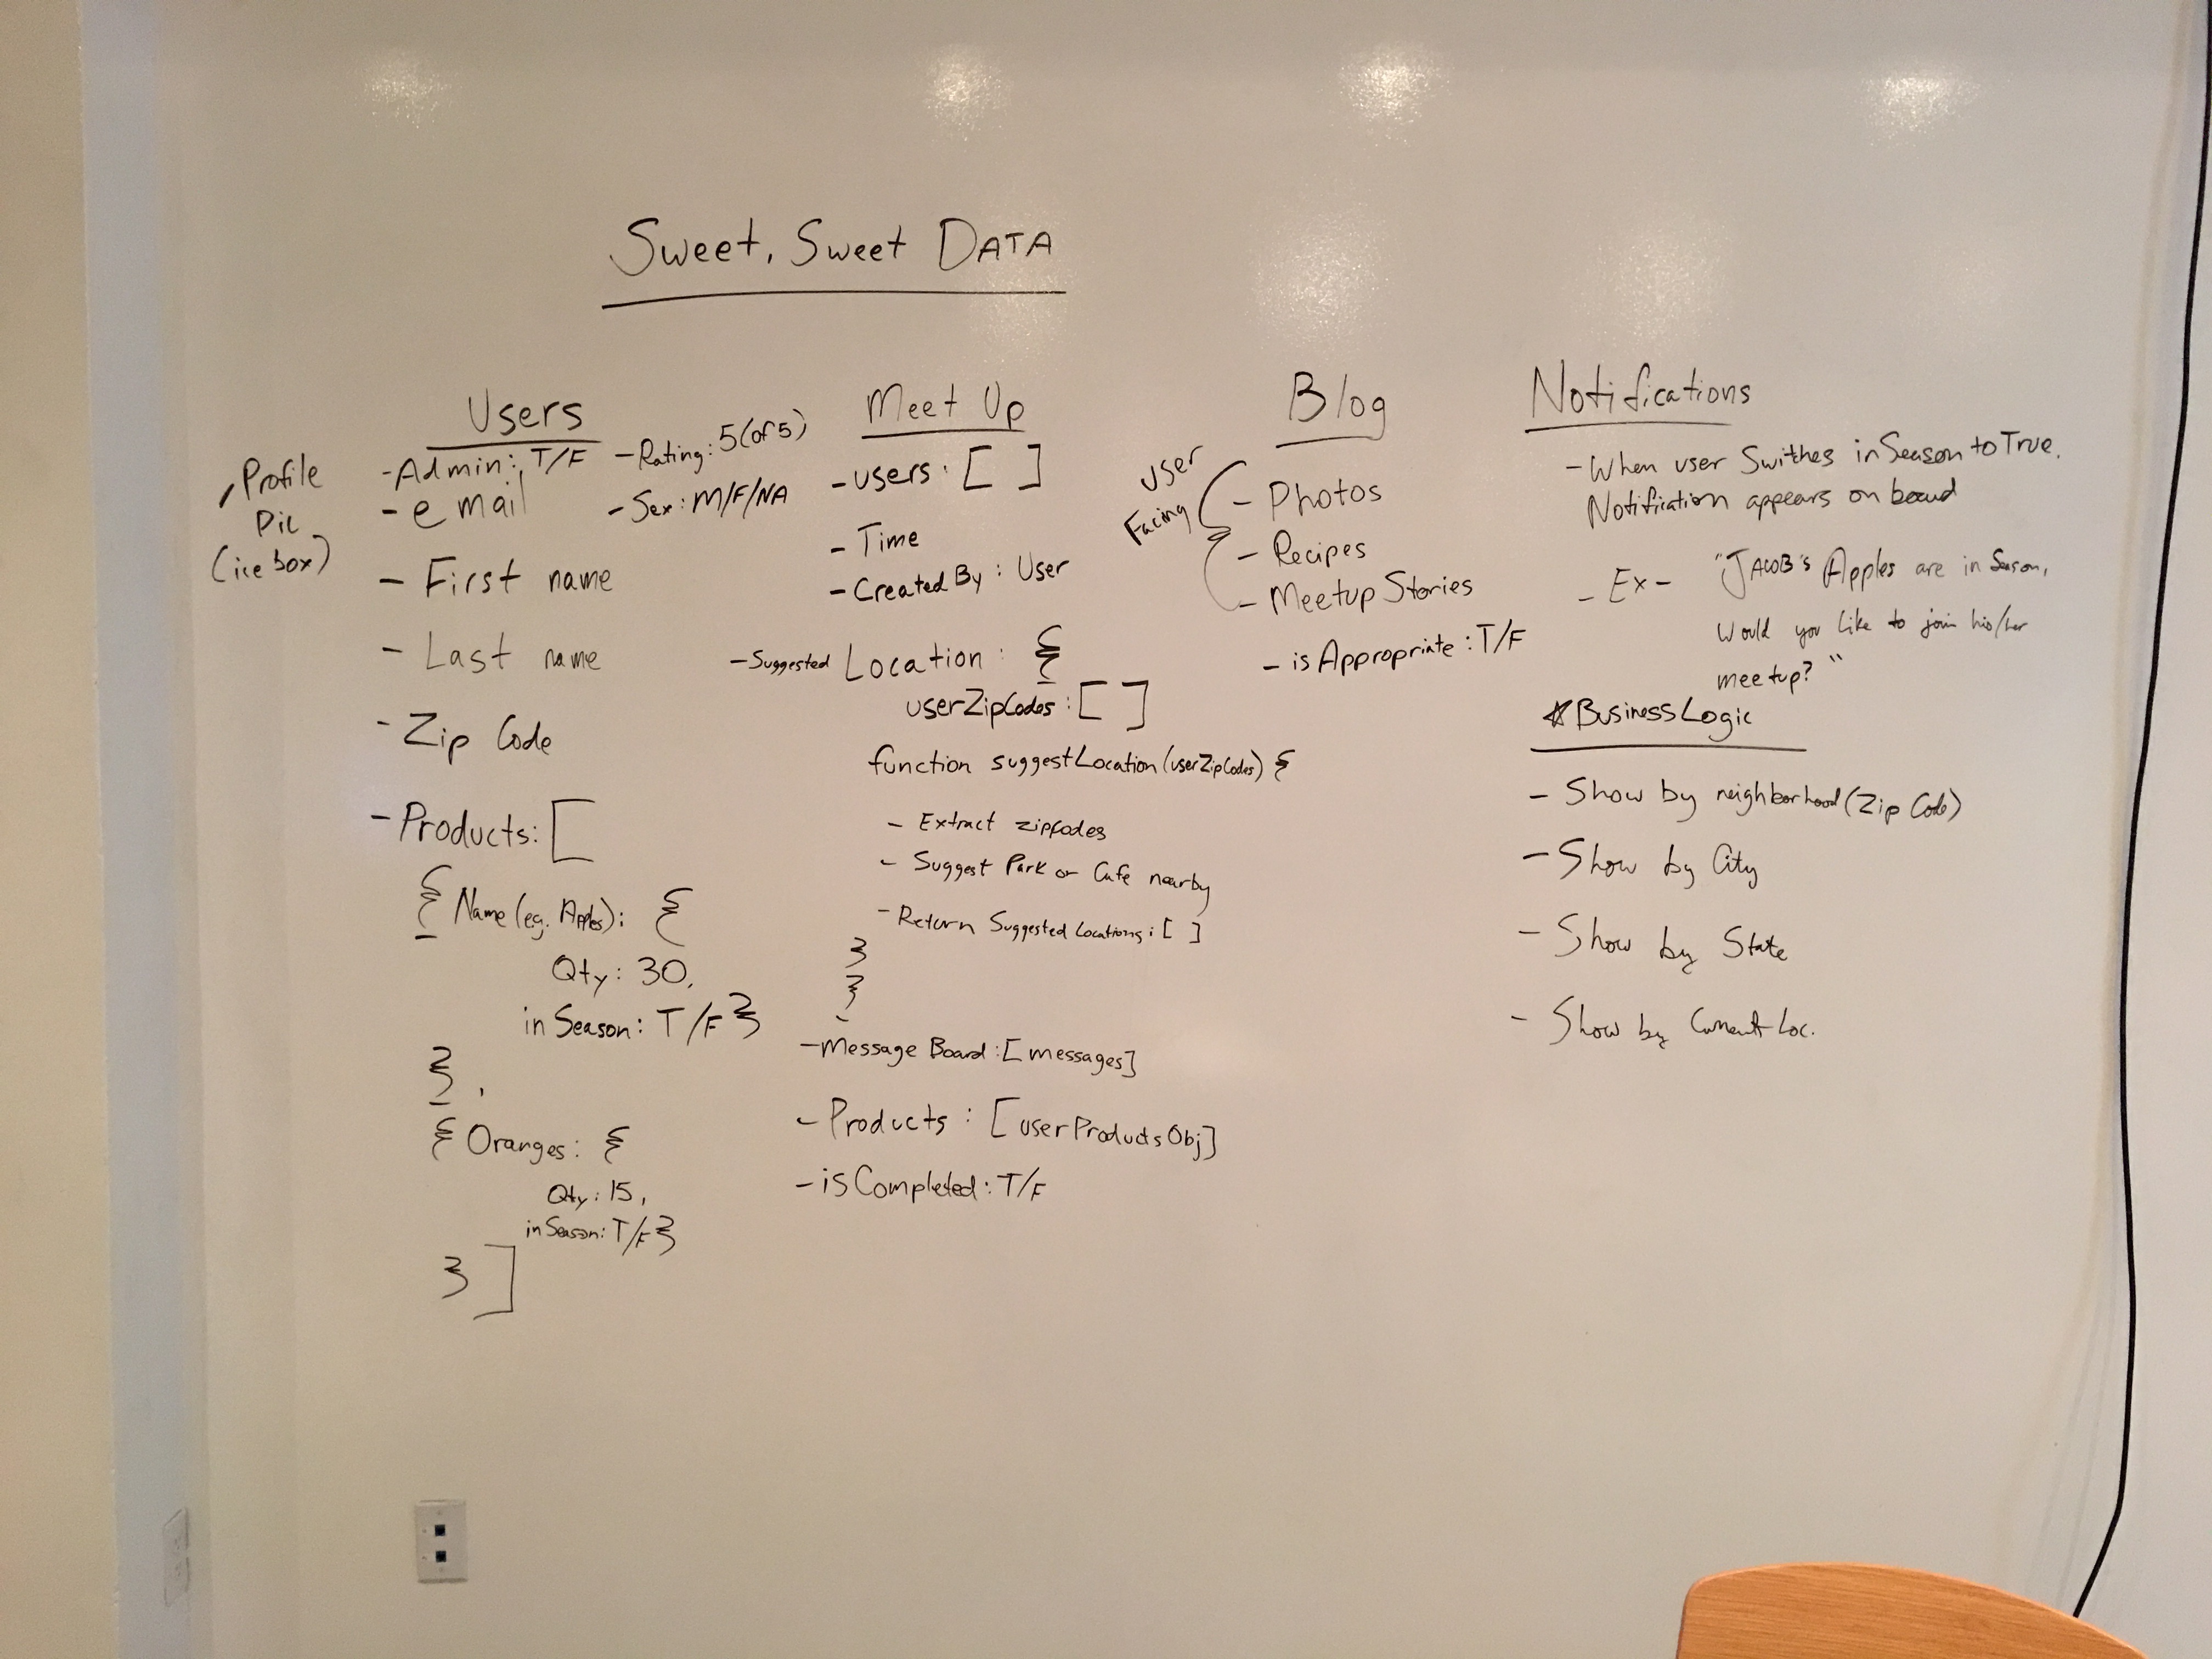 Sweet, Sweet DATA
Users
- Admin: T/F
- email
- First name
- Last name
- Zip Code
- Products: [
{ Name (eg. Apples): {
Qty: 30,
inSeason: T/F }
} ,
{ Oranges: {
Qty: 15,
inSeason: T/F }
} ]
- Rating: 5 (of 5)
- Sex: M/F/NA
Profile
Pic
(ice box)
Meet Up
- users: [ ]
- Time
- Created By: User
- Suggested Location: {
userZipCodes: [ ]
function suggestLocation (userZipCodes) {
- Extract zipCodes
- Suggest Park or Cafe nearby
- Return Suggested Locations: [ ]
}
}
- Message Board: [messages]
- Products: [userProductsObj]
- isCompleted: T/F
Blog
User
Facing
- Photos
- Recipes
- Meetup Stories
- isAppropriate: T/F
Notifications
- When user Swithes inSeason to True,
Notification appears on board
- Ex - "JACOB's Apples are in Season,
Would you like to join his/her
meetup?"
* Business Logic
- Show by neighborhood (Zip Code)
- Show by City
- Show by State
- Show by Current Loc.